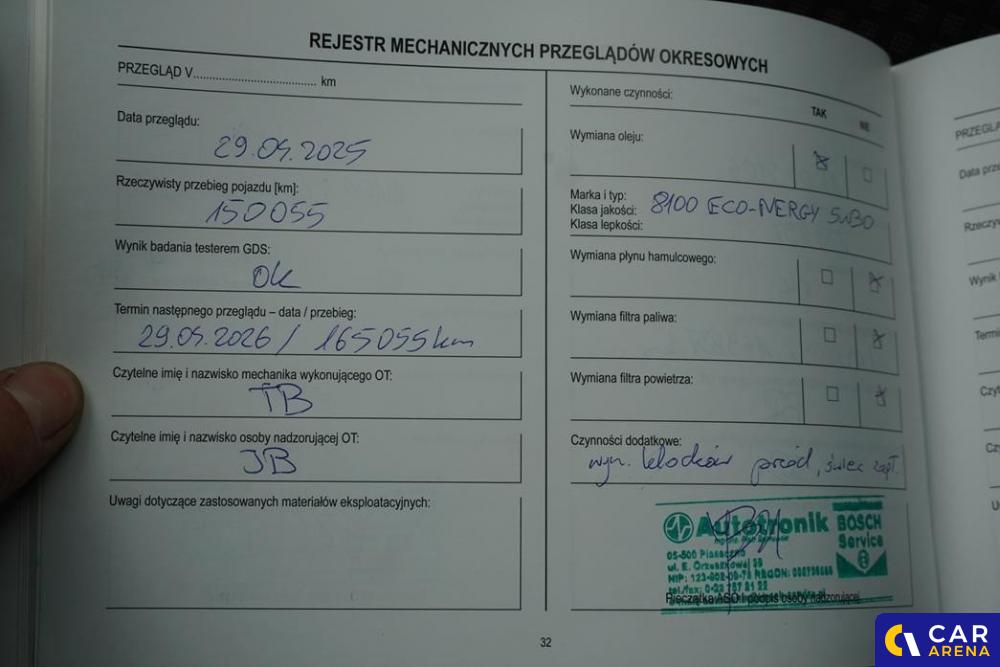 REJESTR MECHANICZNYCH PRZEGLĄDÓW OKRESOWYCH
PRZEGLĄD V..................................... km
Data przeglądu:
29.04.2025
Rzeczywisty przebieg pojazdu [km]:
150055
Wynik badania testerem GDS:
OK
Termin następnego przeglądu – data / przebieg:
29.04.2026 / 165055 km
Czytelne imię i nazwisko mechanika wykonującego OT:
TB
Czytelne imię i nazwisko osoby nadzorującej OT:
JB
Uwagi dotyczące zastosowanych materiałów eksploatacyjnych:
Wykonane czynności:
TAK NIE
Wymiana oleju:
Marka i typ:
Klasa jakości: 8100 ECO-NERGY 5W30
Klasa lepkości:
Wymiana płynu hamulcowego:
Wymiana filtra paliwa:
Wymiana filtra powietrza:
Czynności dodatkowe:
wym. klocków przód, świec zapł.
Autotronik BOSCH
Service
05-500 Piaseczno
ul. E. Orzeszkowej
NIP: REGON:
tel./fax:
Pieczątka ASO i podpis osoby nadzorującej
32
PRZEGLĄ
Data prze
Rzeczyw
Wynik
Termi
Czyt
Cz
U
CAR
ARENA